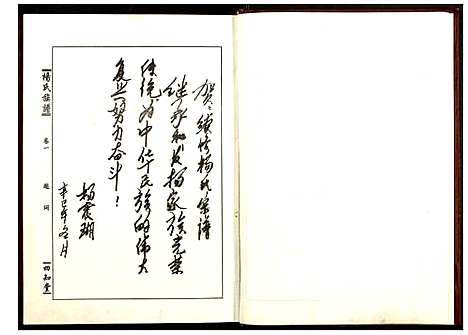 贺:续修杨氏宗谱
继承和发扬家族光荣
传统为中华民族的伟大
复兴努力奋斗!
杨震翔
辛巳年冬月
楊氏族譜
卷一
題詞
四知堂